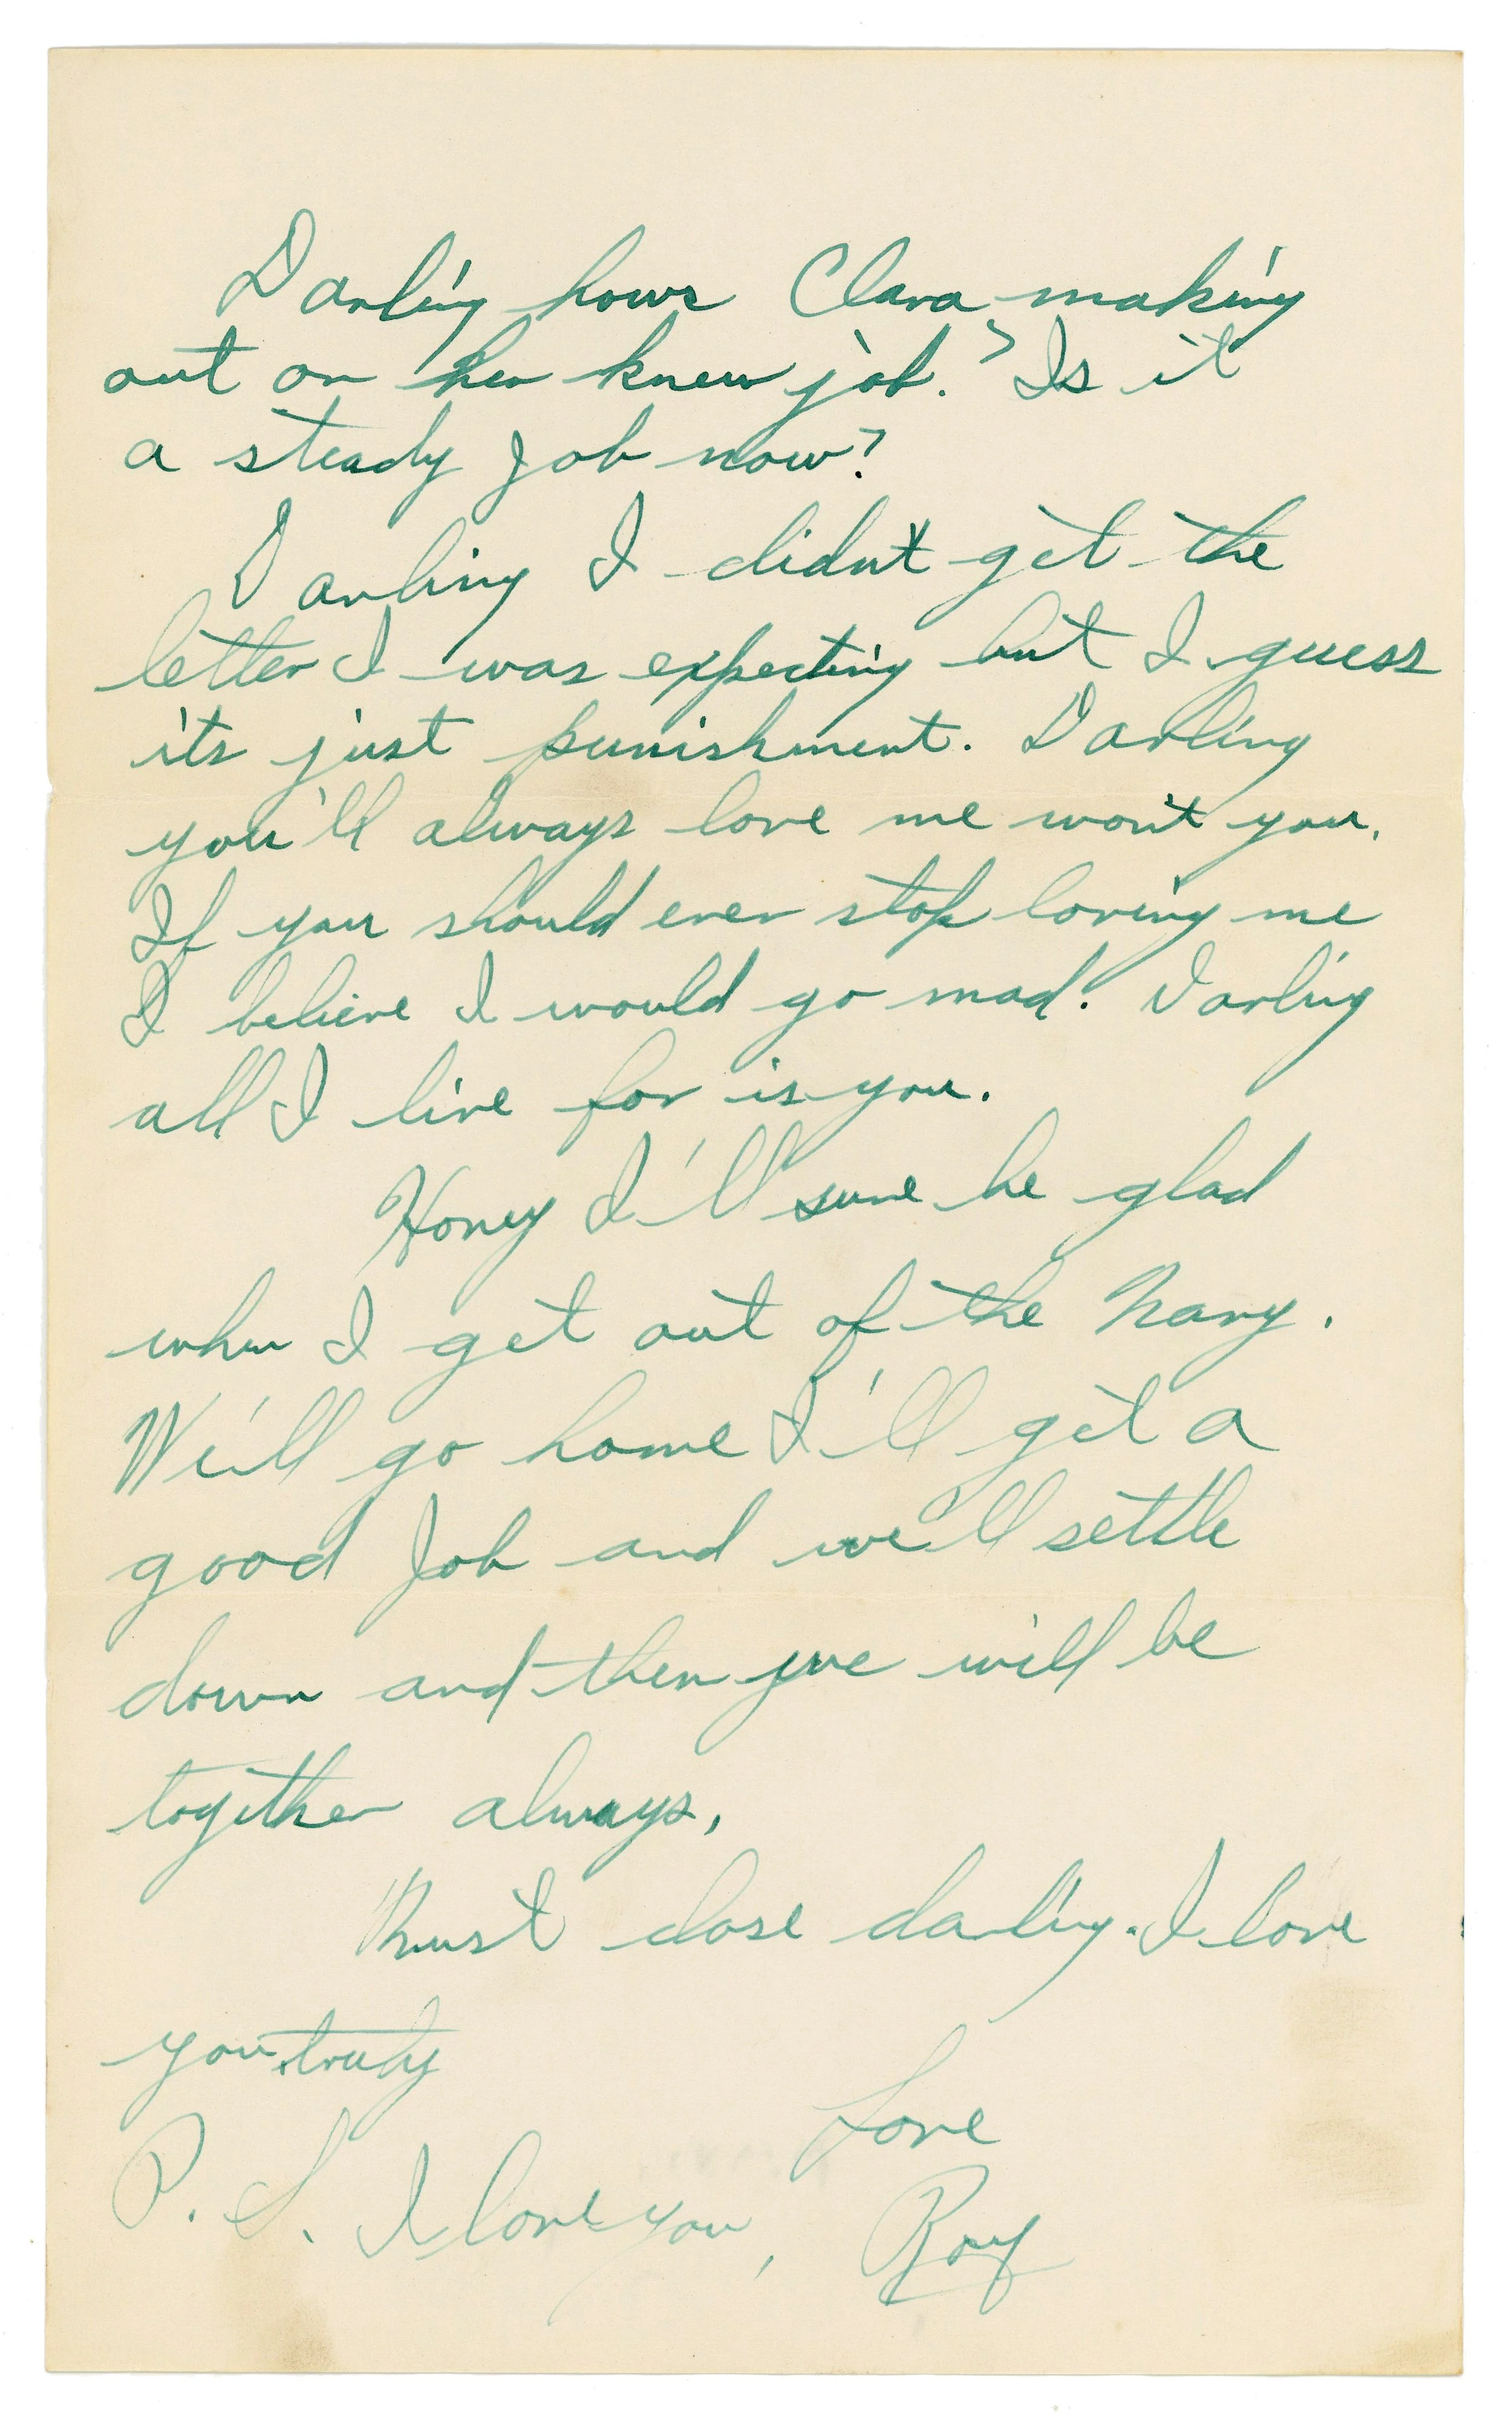 Darling hows Clara making
out on her knew job? Is it
a steady Job now?
Darling I didn't get the
letter I was expecting but I guess
its just punishment. Darling
you'll always love me won't you.
If you should ever stop loving me
I believe I would go mad. Darling
all I live for is you.
Honey I'll sure be glad
when I get out of the Navy.
We'll go home I'll get a
good Job and we'll settle
down and then we will be
together always.
Must close darling. I love
you truly
Love
P.S. I love you, Roy